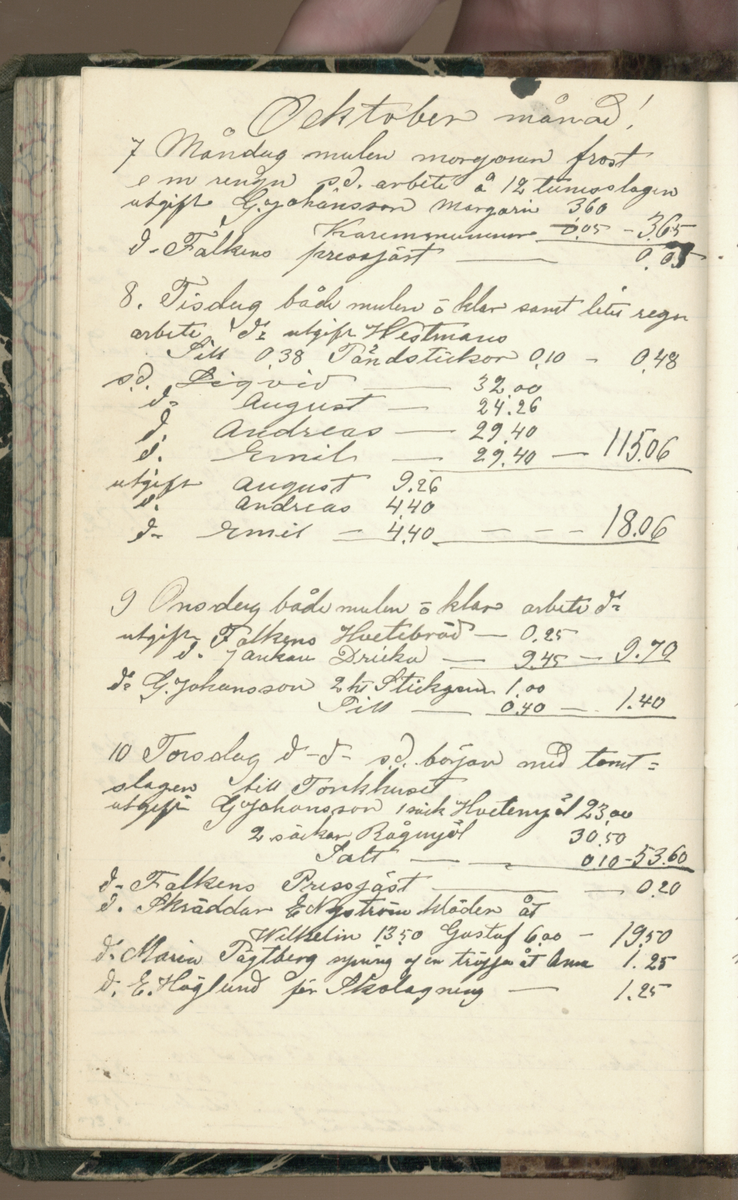 Oktober månad!
7 Måndag mulen morgonen frost
e m rengn s.d. arbete å 12 tumsslagen
utgift G. Johansson margarin 3.60
0.05 - 3.65
d- Falkens pressjäst — 0.05
8. Tisdag både mulen o klar samt litet regn
arbete d:o utgift Westmans
Sill 0.38 Tändstickor 0.10 - 0.48
s.d. Liqvid — 32.00
d:o August — 24.26
d. Andreas — 29.40
d. Emil — 29.40 — 115.06
utgift August 9.26
d. Andreas 4.40
d- Emil — 4.40 - - - 18.06
9 Onsdag både mulen o klar arbete d:o
utgift Falkens Hvetebröd — 0.25
d. Dricka — 9.45 - 9.70
d:o G. Johansson 2 1.00
Sill — 0.40 — 1.40
10 Torsdag d-d- s.d. början med tomt=
slagen till Torkhuset
utgift G Johansson 1 säck Hvetemjöl 23.00
2 säckar Rågmjöl 30.50
Salt — 0.10 - 53.60
d- Falkens Pressjäst — 0.20
d. Skräddar E Nyström kläder åt
Wilhelm 13.50 Gustaf 6.00 - 19.50
d:o Maria af en tröjja åt Anna 1.25
d. E. Höglund för Skolagning — 1.25